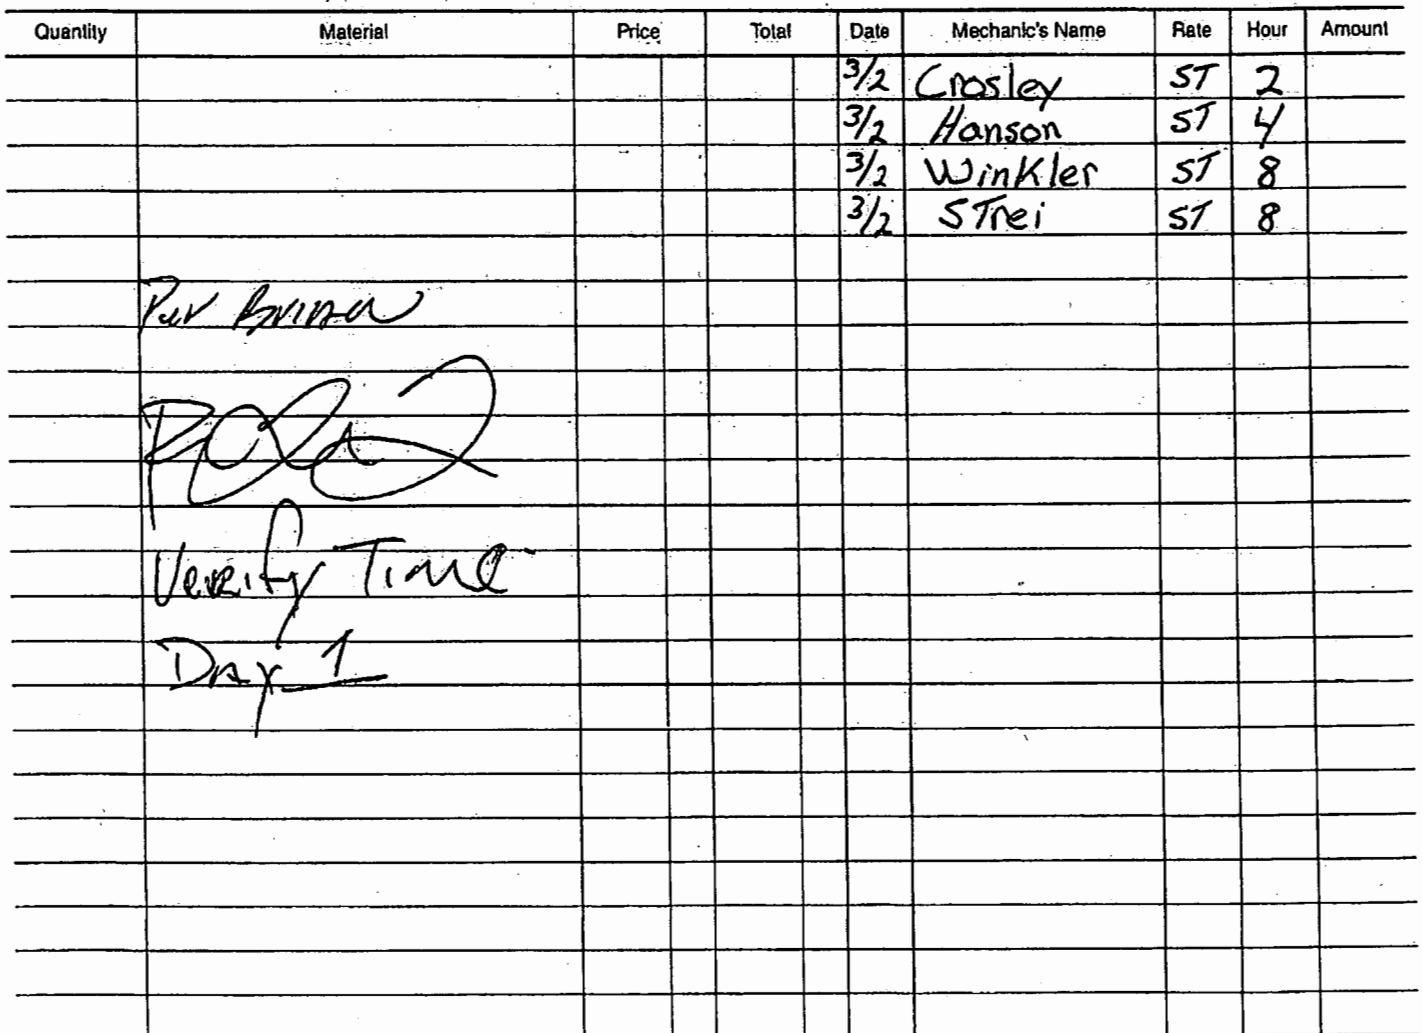 Quantity Material Price Total Date Mechanic's Name Rate Hour Amount
3/2 Crosley ST 2
3/2 Hanson ST 4
3/2 Winkler ST 8
3/2 STrei ST 8
Per
Verify Time
Day 1